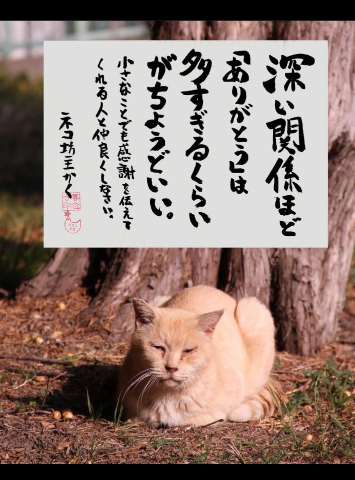 深い関係ほど
「ありがとう」は
多すぎるくらい
がちょうどいい。
小さなことでも感謝を伝えて
くれる人と仲良くしなさい。
ネコ坊主かく